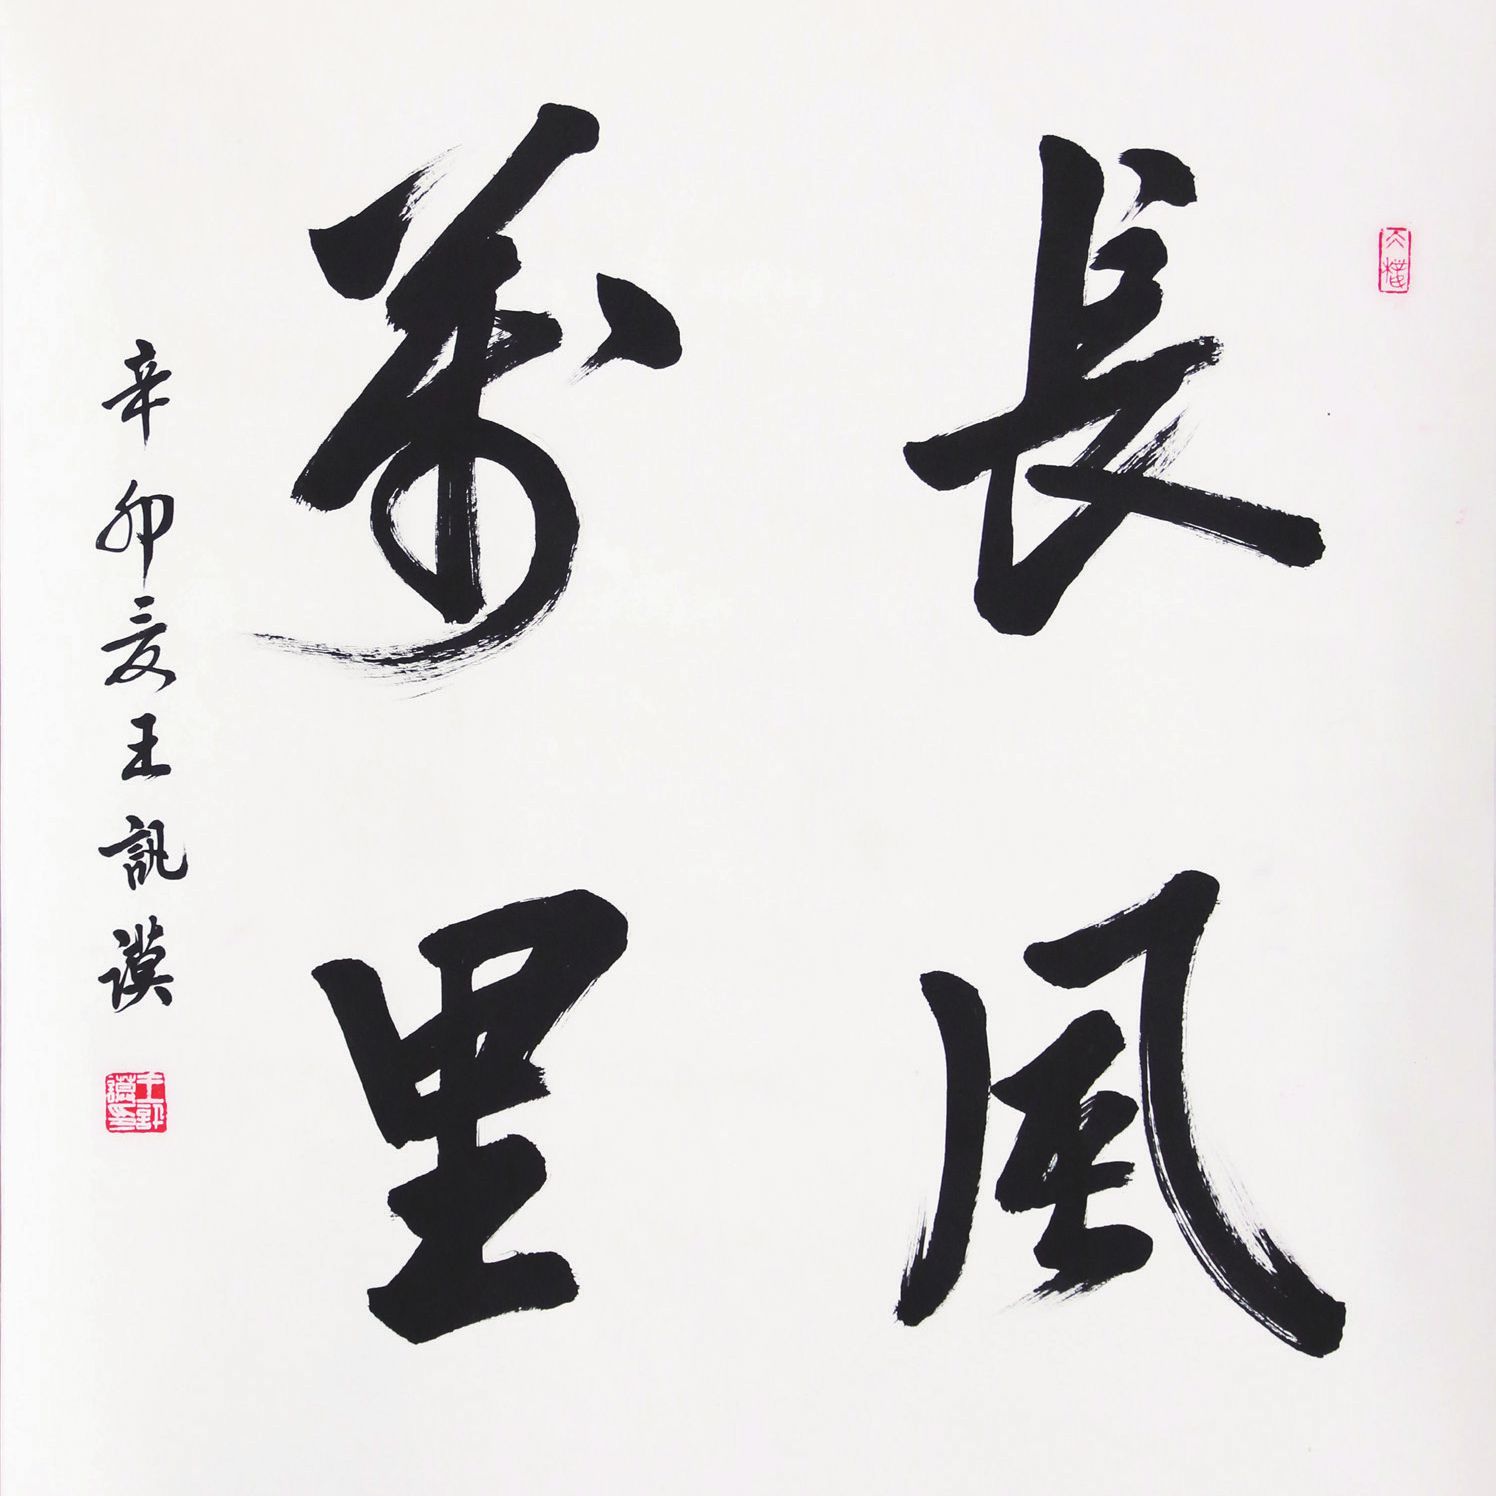 長風
萬里
辛卯夏王訊謨